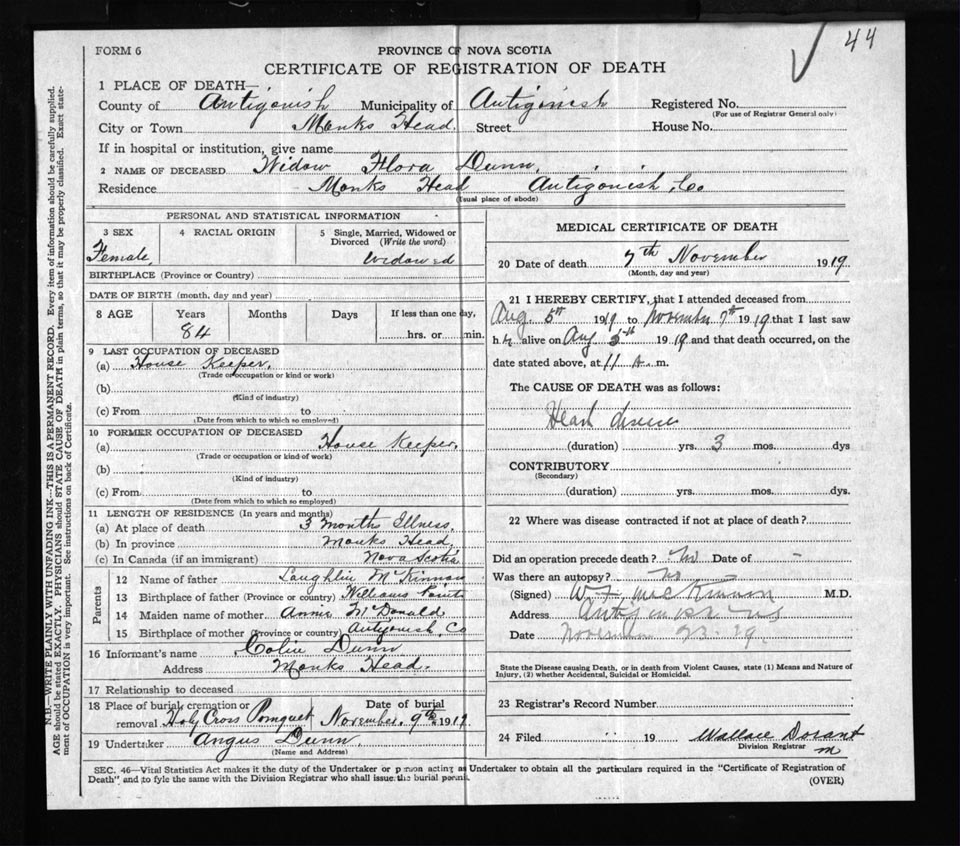 44
FORM 6
PROVINCE OF NOVA SCOTIA
CERTIFICATE OF REGISTRATION OF DEATH
1 PLACE OF DEATH—
County of Antigonish Municipality of Antigonish Registered No.
(For use of Registrar General only)
City or Town Monks Head. Street House No.
If in hospital or institution, give name
2 NAME OF DECEASED Widow Flora Dunn,
Residence Monks Head Antigonish, Co
(Usual place of abode)
PERSONAL AND STATISTICAL INFORMATION
3 SEX 4 RACIAL ORIGIN 5 Single, Married, Widowed or
Divorced (Write the word)
Female, Widowed
BIRTHPLACE (Province or Country)
DATE OF BIRTH (month, day and year)
8 AGE Years Months Days If less than one day,
84 hrs. or min.
9 LAST OCCUPATION OF DECEASED
(a) House Keeper,
(Trade or occupation or kind or work)
(b)
(Kind of industry)
(c) From to
(Date from which to which so employed)
10 FORMER OCCUPATION OF DECEASED
(a) House Keeper,
(Trade or occupation or kind of work)
(b)
(Kind of industry)
(c) From to
(Date from which to which so employed)
11 LENGTH OF RESIDENCE (In years and months)
(a) At place of death 3 months Illness,
(b) In province Monks Head,
(c) In Canada (if an immigrant) Nova Scotia
Parents
12 Name of father Laughlin McKinnon
13 Birthplace of father (Province or country) Williams Point
14 Maiden name of mother Annie McDonald
15 Birthplace of mother (Province or country) Antigonish, Co
16 Informant's name Colin Dunn
Address Monks Head.
17 Relationship to deceased
18 Place of burial, cremation or Date of burial
removal Holy Cross Pomquet November, 9th 1919
19 Undertaker Angus Dunn,
(Name and Address)
MEDICAL CERTIFICATE OF DEATH
20 Date of death 7th November 1919
(Month, day and year)
21 I HEREBY CERTIFY, that I attended deceased from
Aug. 5th 1919 to November 7th 1919 that I last saw
h alive on Aug 5th 1919 and that death occurred, on the
date stated above, at 11 A. m.
The CAUSE OF DEATH was as follows:
Heart disease
(duration) yrs. 3 mos. dys
CONTRIBUTORY
(Secondary)
(duration) yrs. mos. dys.
22 Where was disease contracted if not at place of death?
Did an operation precede death? No Date of -
Was there an autopsy? No
(Signed) W. F. MacKinnon M.D.
Address Antigonish NS
Date November 23 - 19.
State the Disease causing Death, or in death from Violent Causes, state (1) Means and Nature of
Injury, (2) whether Accidental, Suicidal or Homicidal.
23 Registrar's Record Number
24 Filed 19 Wallace Dorant
Division Registrar
SEC. 46—Vital Statistics Act makes it the duty of the Undertaker or person acting as Undertaker to obtain all the particulars required in the "Certificate of Registration of
Death" and to fyle the same with the Division Registrar who shall issue the burial permit.
(OVER)
N.B.—WRITE PLAINLY WITH UNFADING INK—THIS IS A PERMANENT RECORD. Every item of information should be carefully supplied.
AGE should be stated EXACTLY. PHYSICIANS should STATE CAUSE OF DEATH in plain terms, so that it may be properly classified. Exact state-
ment of OCCUPATION is very important. See instructions on back of Certificate.